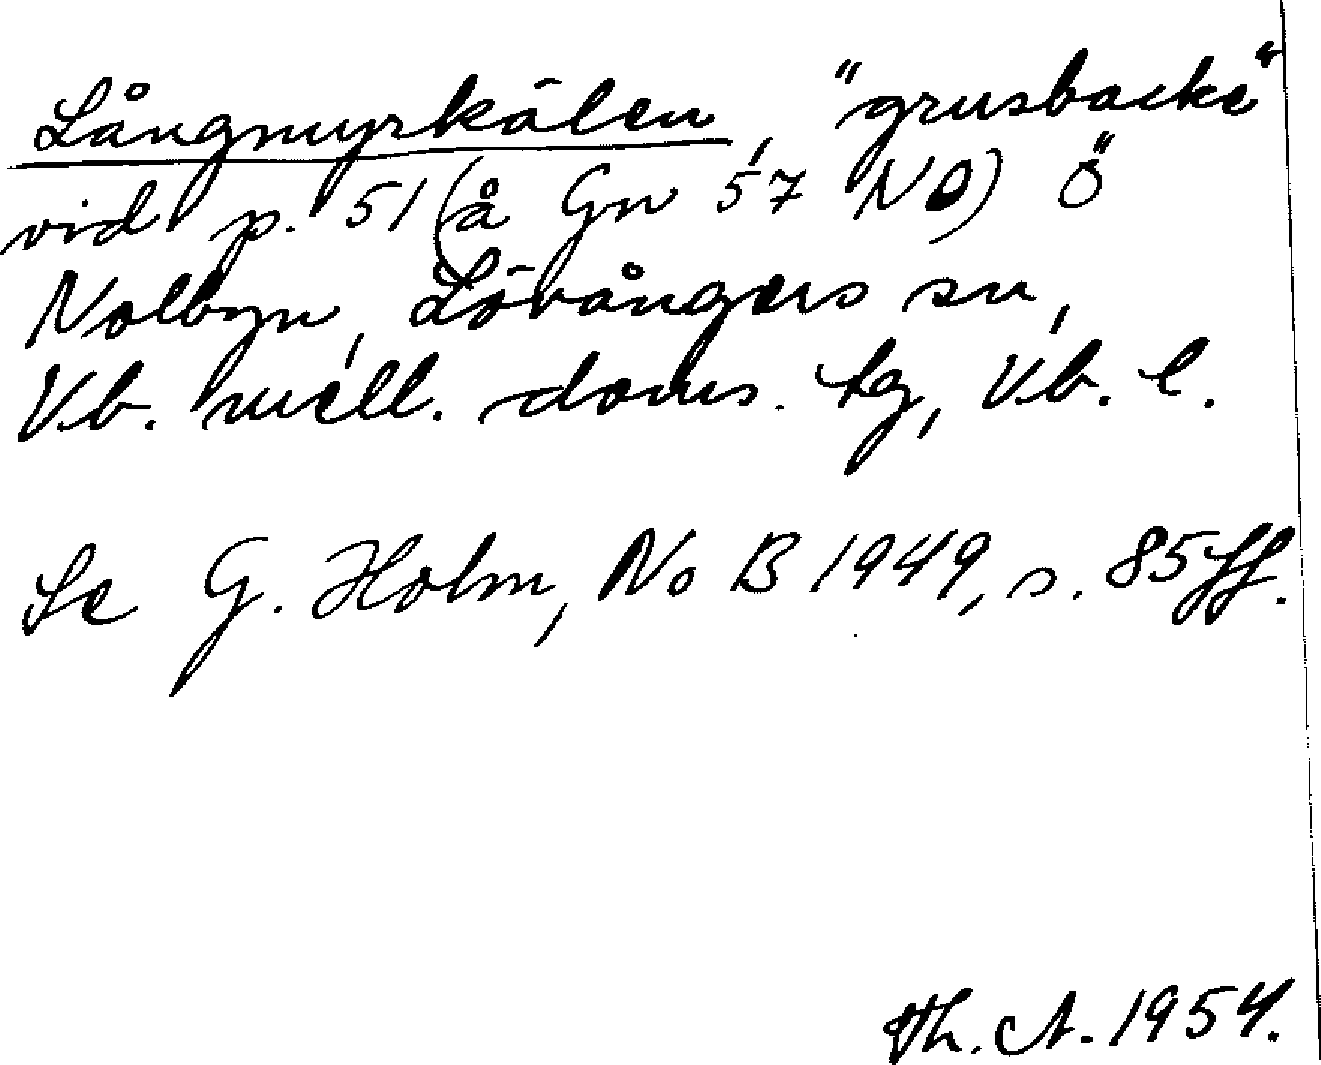 Långmyrkälen, "grusbacke"
vid p. 51 (å Gn 57 NO) Ö
Nolbyn, Lövångers sn,
Vb. mell. doms. tg, Vb. l.
Se G. Holm, No B 1949, s. 85 ff.
Th. A. 1954.